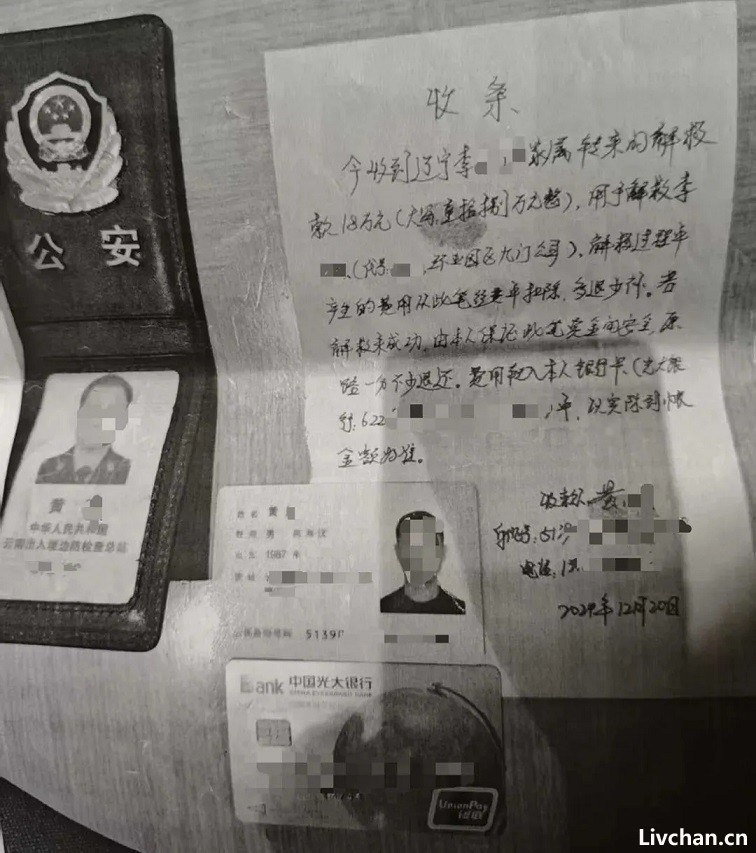 公安
黄
中华人民共和国
云南出入境边防检查总站
收条
今收到辽宁李 , 家属转来的解救
款18万元(大写:壹拾捌万元整),用于解救李
(代号 , 环亚园区九门公司)。解救过程中
产生的费用从此笔经费中扣除,多退少补。若
解救未成功,由本人保证此笔资金的安全,原
路一分不少退还。费用转入本人银行卡(光大银
行:622 )中,以实际到帐
金额为准。
收款人:黄
身份证号:5139
电话:1
2024年12月20日
姓名 黄
性别 男 民族 汉
出生 1987 年
住址
公民身份号码 5139
Bank 中国光大银行
CHINA EVERBRIGHT BANK
UnionPay
银联
Livchan.cn